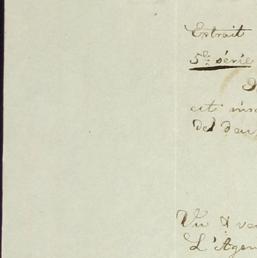 Extrait
5e série
cit ins
del dou
Vu & vé
L'Agen